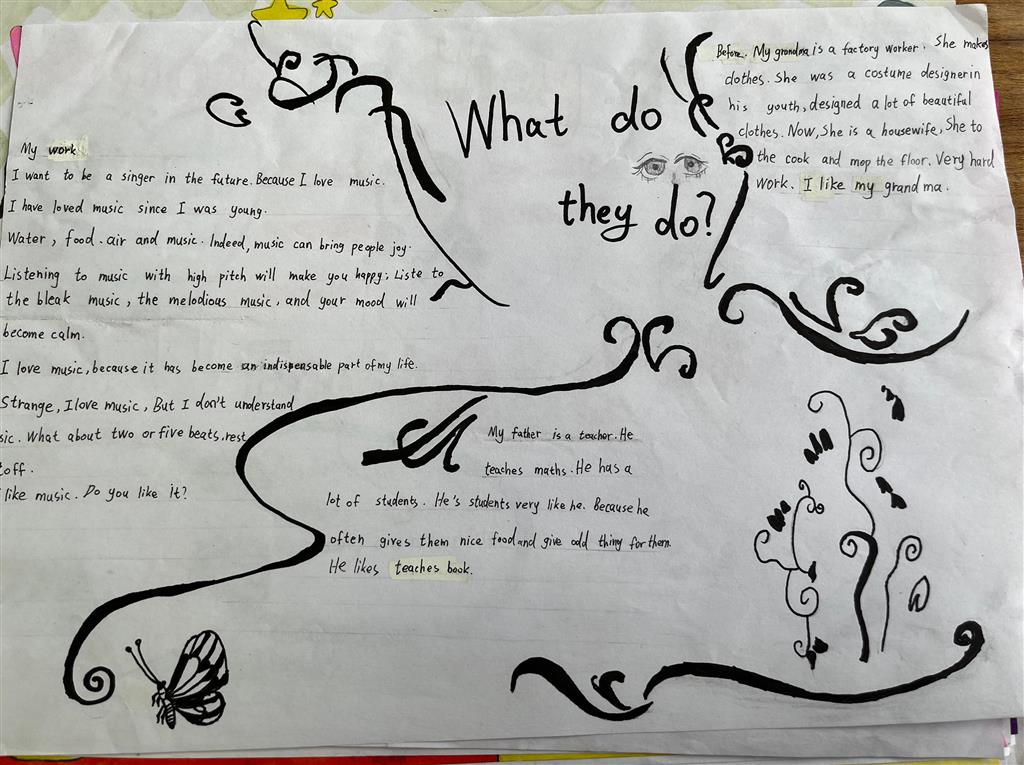 What do
they do?
My work
I want to be a singer in the future. Because I love music.
I have loved music since I was young.
Water, food. air and music. Indeed, music can bring people joy.
Listening to music with high pitch will make you happy; Liste to
the bleak music, the melodious music, and your mood will
become calm.
I love music, because it has become an indispensable part of my life.
Strange, I love music, But I don't understand
sic. What about two or five beats, rest
off.
like music. Do you like it?
Before. My grandma is a factory worker. She makes
clothes. She was a costume designer in
his youth, designed a lot of beautiful
clothes. Now, She is a housewife, She to
the cook and mop the floor. Very hard
work. I like my grandma.
My father is a teacher. He
teaches maths. He has a
lot of students. He's students very like he. Because he
often gives them nice food and give odd thing for them.
He likes teaches book.